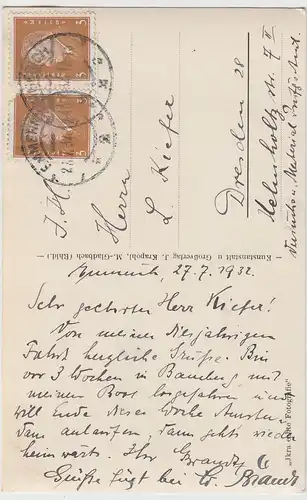 I. H.
Herrn
L. Kiefer
Dresden 28
Helmholtzstr. 7 II
Versuchs u Material Prüf Amt
Kunstanstalt u. Großverlag J. Krapohl, M.-Gladbach (Rhld.)
Emmerich, 27.7.1932.
Sehr geehrter Herr Kiefer!
Von meiner diesjährigen
Fahrt herzliche Grüße. Bin
vor 3 Wochen in Bamberg mit
meinem Boot losgefahren und
will Ende dieser Woche
dann anlaufen dann gehts wieder
heimwärts. Ihr Brandt
Grüße fügt bei Brandt
"Ikra echte Fotografie"
5
5
EMMERICH